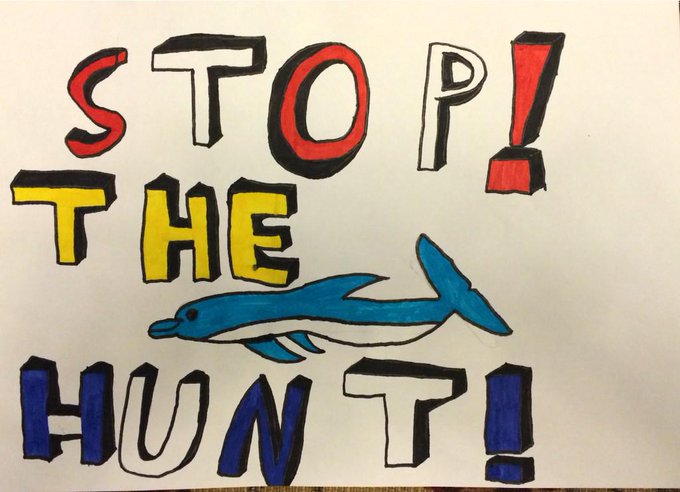 STOP!
THE
HUNT!